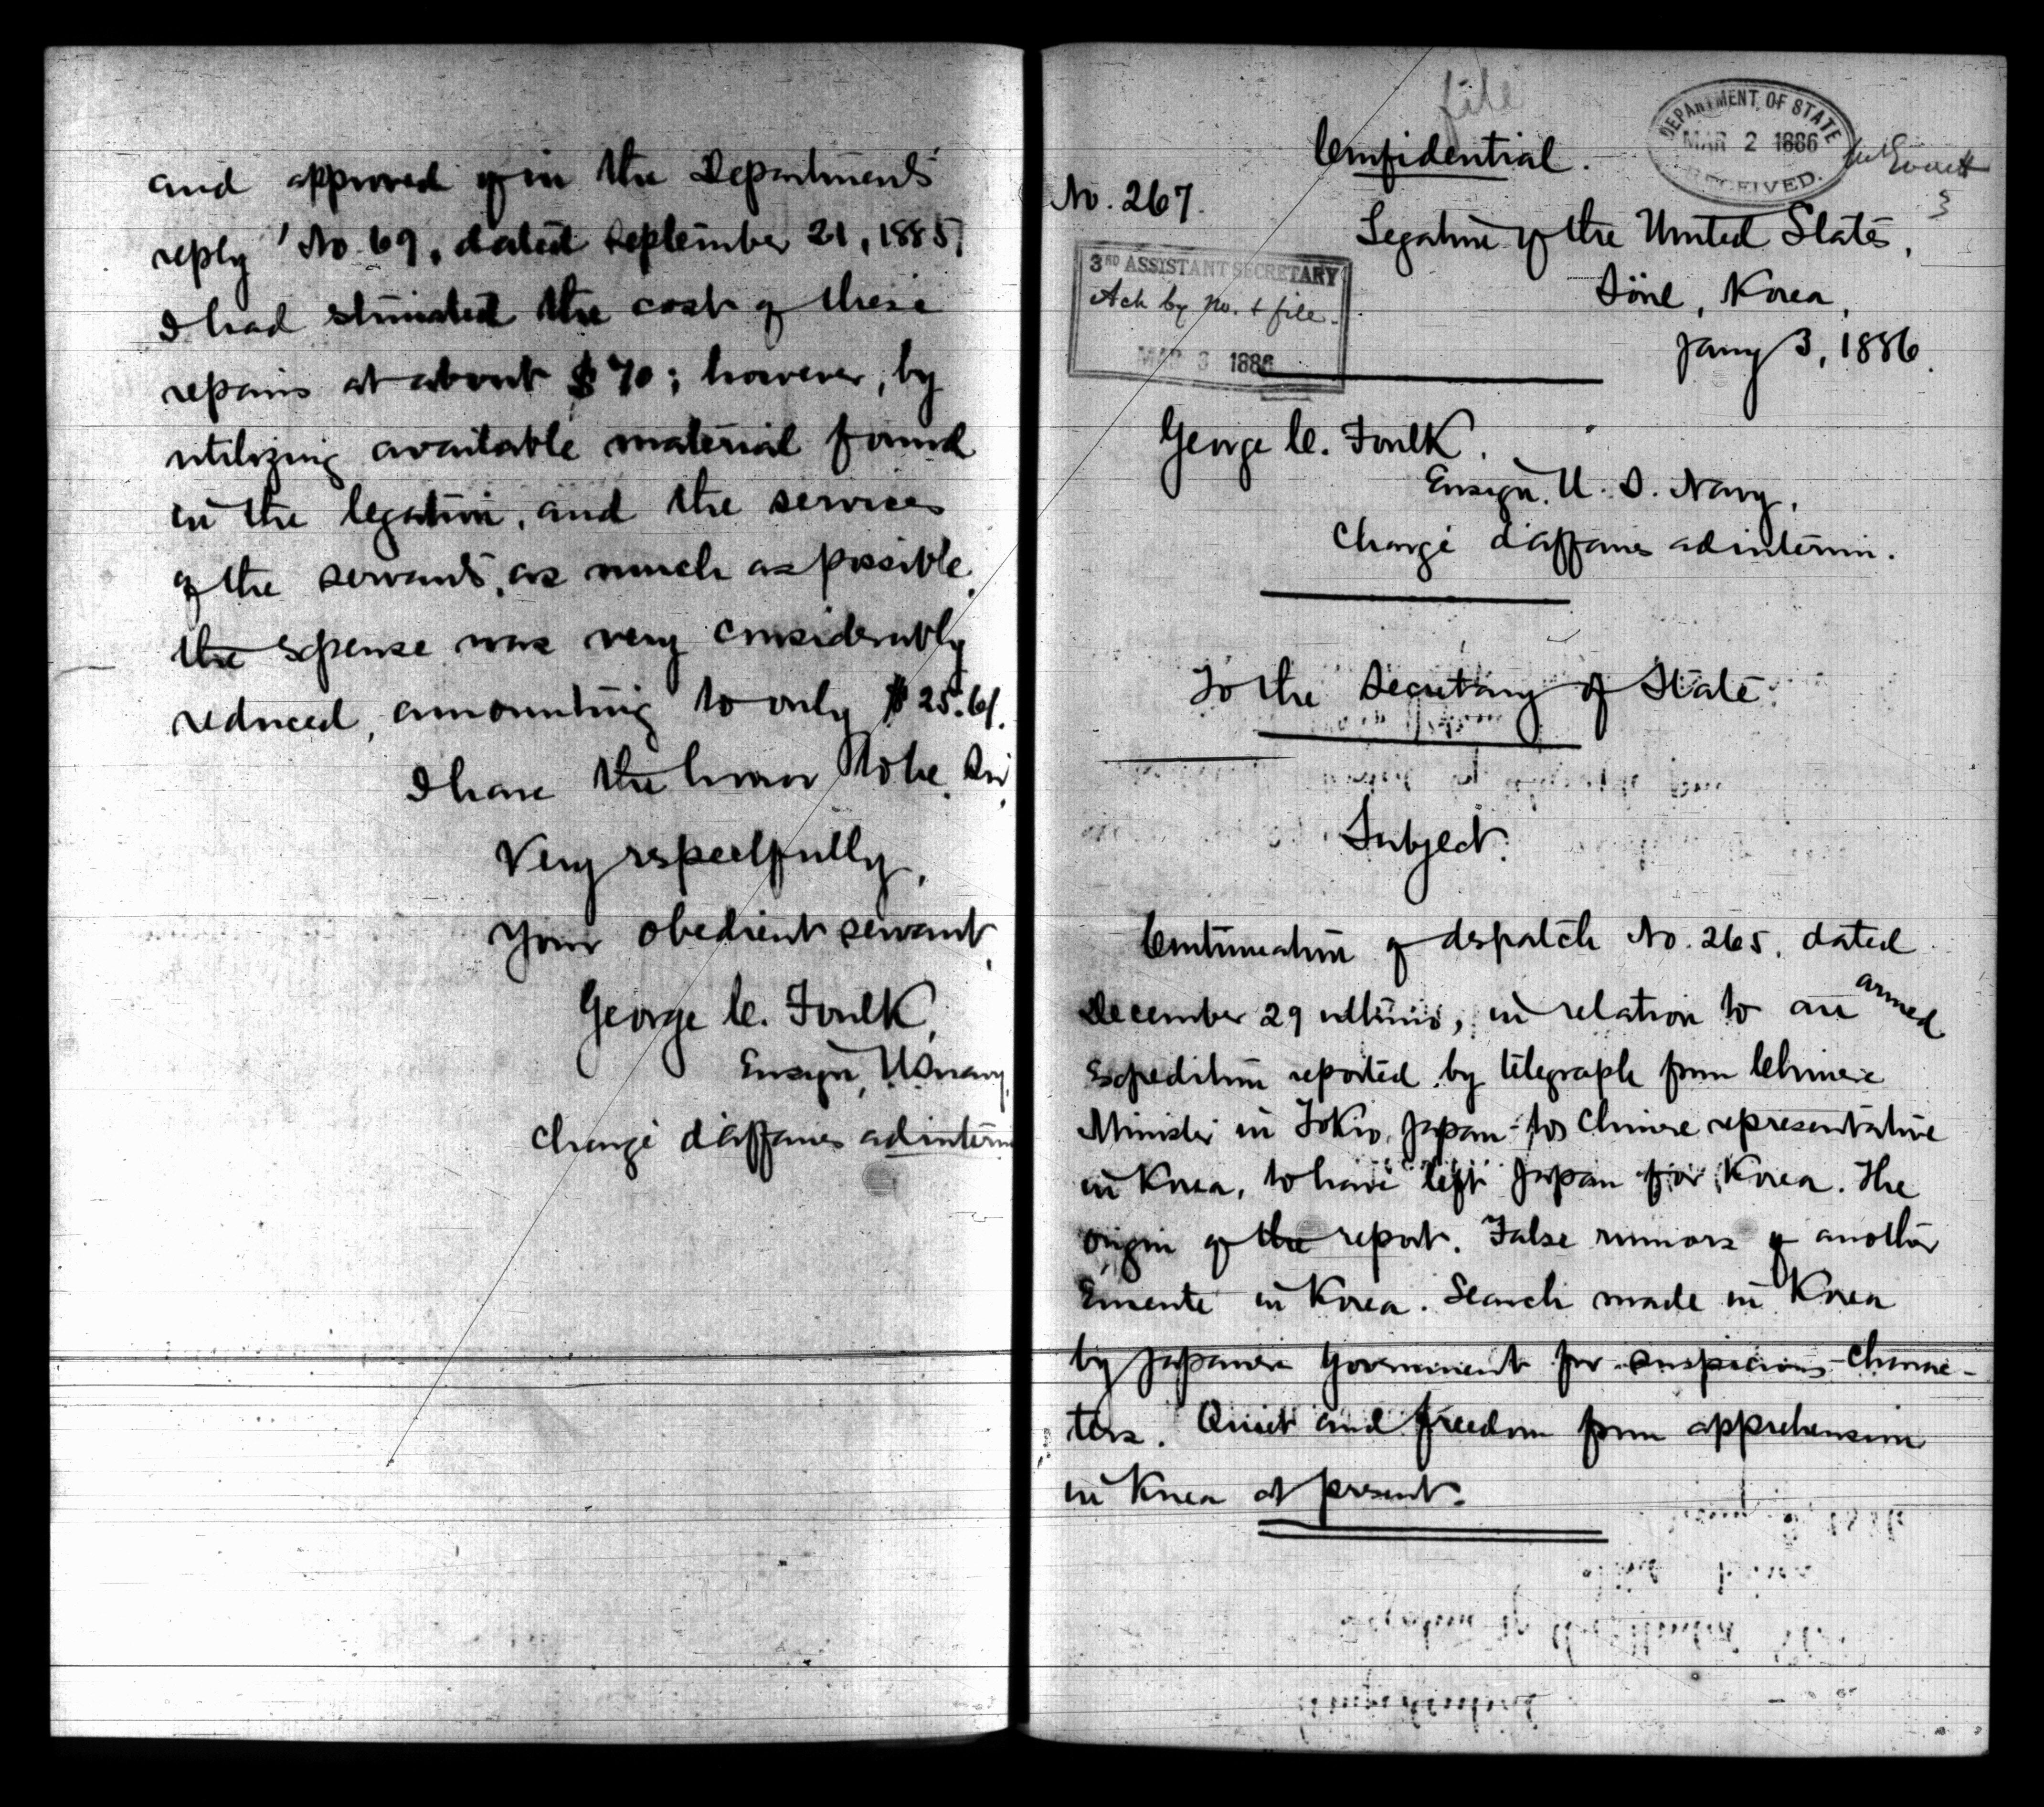 and approved of in the Department's
reply No. 69, dated September 21, 1885,
I had estimated the cost of these
repairs at about $70; however, by
utilizing available material found
in the legation, and the services
of the servants, as much as possible,
the expense was very considerably
reduced, amounting to only $25.61.
I have the honor to be, Sir,
Very respectfully,
Your obedient servant,
George C. Foulk,
Ensign, U.S. Navy,
Chargé d'affaires ad interim
file
Confidential.
DEPARTMENT OF STATE
MAR 2 1886
RECEIVED.
No. 267.
Legation of the United States,
Söul, Korea,
Jany 3, 1886.
3RD ASSISTANT SECRETARY
Ack by No. & file.
MAR 3 1886
George C. Foulk,
Ensign, U. S. Navy,
Chargé d'affaires ad interim.
To the Secretary of State.
Subject.
Continuation of despatch No. 265, dated
December 29 ultimo, in relation to an armed
Expedition reported by telegraph from Chinese
Minister in Tokio, Japan to Chinese representative
in Korea, to have left Japan for Korea. The
origin of the report. False rumors of another
Emeute in Korea. Search made in Korea
by Japanese Government for suspicious charac-
ters. Quiet and freedom from apprehension
in Korea at present.